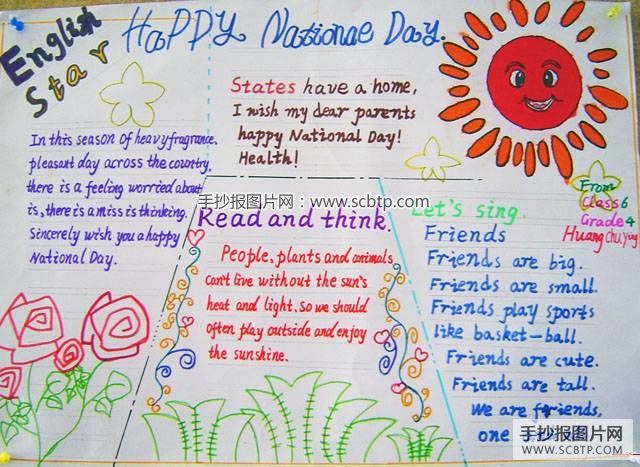 English
Star
HaPPY Nationae Day.
In this season of heavy fragrance,
pleasant day across the country,
there is a feeling worried about
is, there is a miss is thinking.
Sincerely wish you a happy
National Day.
States have a home,
I wish my dear parents
happy National Day!
Health!
手抄报图片网：www.scbtp.com
Read and think.
People, plants and animals
can't live without the sun's
heat and light. So we should
often play outside and enjoy
the sunshine.
From
Class 6
Grade 4
Huang Chu Ying
Let's sing.
Friends
Friends are big.
Friends are small.
Friends play sports
like basket-ball.
Friends are cute.
Friends are tall.
We are friends,
one
手抄报图片网
WWW.SCBTP.COM